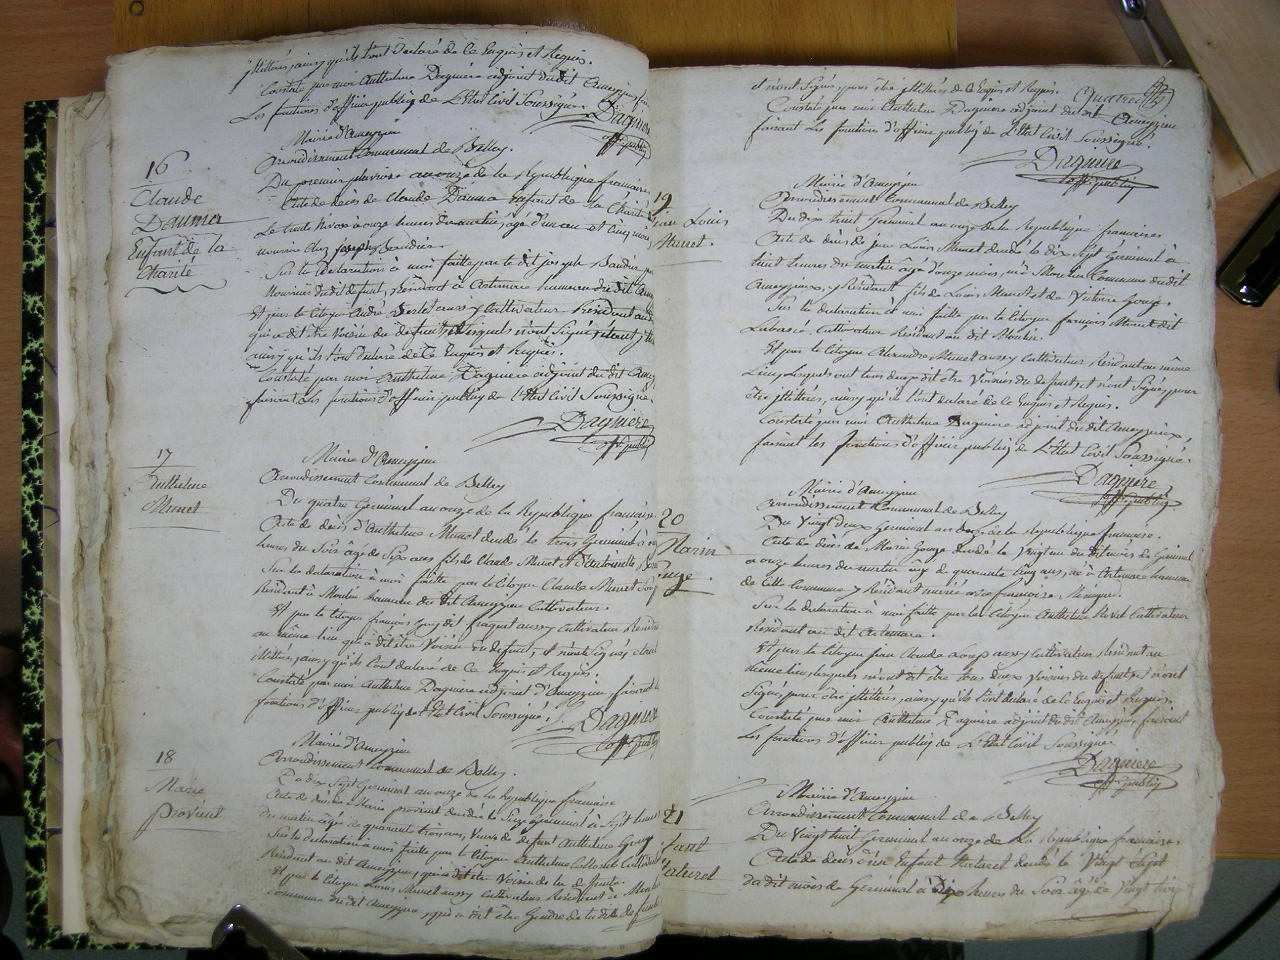 illitérés, ainsy qu'ils l'ont déclaré de Ce Enquis et Requis.
Constaté par moi Anthelme Dagniere adjoint du dit Ameyzieu
Les fonctions d'officier public de L'Etat Civil Soussigné
Dagniere
off. public
16
Claude
Daumer
Enfant de la
Charité
Mairie d'Ameyzieu
Arrondissement Communal de Belley.
Du premier pluviose an onze de la République française
Acte de décès de Claude Daumer Enfant de la Charité
Le trente Nivose à onze heures du matin, agé d'un an et Cinq mois
nourri chez joseph
Sur la déclaration à moi faitte par le dit joseph
Nourricier du dit défunt, Résidant à
Et par le Citoyen André aussy Cultivateur Résidant au
qui a dit être Voisin du défunt et lesquels n'ont Signé, étant
ainsy qu'ils l'ont déclaré de Ce Enquis et Requis.
Constaté par moi Anthelme Dagniere adjoint du dit
faisant Les fonctions d'officier public de L'Etat Civil Soussigné.
Dagniere
off. public
17
Anthelme
Munet
Mairie d'Ameyzieu
Arrondissement Communal de Belley
Du quatre Germinal an onze de la République française
Acte de décès d'Anthelme Munet décédé le trois Germinal à
heures du Soir âgé de Six ans fils de Claude Munet et d'Antoinette
Sur la déclaration à moi faitte par le Citoyen Claude Munet
Résidant à hameau du dit Ameyzieu Cultivateur.
Et par le Citoyen françois Guy dit aussy Cultivateur Résidant
au même lieu qui a dit être Voisin du défunt, et n'ont Signé, étant
illitérés, ainsy qu'ils l'ont déclaré de Ce Enquis et Requis
Constaté par moi Anthelme Dagniere adjoint d'Ameyzieu faisant les
fonctions d'officier public de l'Etat Civil Soussigné
Dagniere
off. public
18
Marie
provent
Mairie d'Ameyzieu
Arrondissement Communal de Belley.
Du dix Sept Germinal an onze de la République française
Acte de décès de Marie provent décédée le Seize Germinal à Sept heures
du matin agé de quarante trois ans, Veuve de défunt Anthelme Guy
Sur la déclaration à moi faitte par le Citoyen Anthelme Cultivateur
Résidant au dit Ameyzieu, qui a dit être Voisin de la défunte.
Et par le Citoyen Louis Munet aussy Cultivateur Résidant à
Commune du dit Ameyzieu qui a dit être Gendre de la dite défunte
et n'ont Signé, pour être illitérés de Ce Enquis et Requis.
Constaté par moi Anthelme Dagniere adjoint du dit Ameyzieu
faisant Les fonctions d'officier public de L'Etat Civil Soussigné.
Dagniere
off. public
19
Louis
Munet.
Mairie d'Ameyzieu
Arrondissement Communal de Belley
Du dix huit Germinal an onze de la République française
Acte de décès de jean Louis Munet décédé le dix Sept Germinal à
huit heures du matin âgé d'onze mois, né à Commune du dit
Ameyzieux, y Résidant fils de Louis Munet et de Victoire Gouge.
Sur la déclaration à moi faitte par le Citoyen françois Munet dit
Cultivateur Résidant au dit
Et par le Citoyen Alexandre Munet aussy Cultivateur Résidant au même
Lieu, lesquels ont tous deux dit être Voisins du défunt, et n'ont Signé, pour
être illitérés, ainsy qu'ils l'ont déclaré de Ce Enquis et Requis.
Constaté par moi Anthelme Dagniere adjoint du dit Ameyzieux,
faisant les fonctions d'officier public de L'Etat Civil Soussigné.
Dagniere
off. public
20
Marie
Gouge.
Mairie d'Ameyzieu
Arrondissement Communal de Belley
Du Vingt deux Germinal an onze de la République française.
Acte de décès de Marie Gouge décédée le Vingt un du dit mois de Germinal
à onze heures du matin âgée de quarante Cinq ans, née à Artemare hameau
de cette Commune y Résidant mariée avec françois
Sur la déclaration à moi faitte par le Citoyen Anthelme Cultivateur
Résidant au dit Artemare.
Et par le Citoyen jean Claude aussy Cultivateur Résidant au
même lieu, lesquels m'ont dit être tous deux Voisins du défunt, et n'ont
Signé, pour être illitérés, ainsy qu'ils l'ont déclaré de Ce Enquis et Requis.
Constaté par moi Anthelme Dagniere adjoint du dit Ameyzieu, faisant
Les fonctions d'officier public de L'Etat Civil Soussigné
Dagniere
off. public
21
Enfant
Naturel
Mairie d'Ameyzieu
Arrondissement Communal de Belley
Du Vingt huit Germinal an onze de la République française.
Acte de décès d'un Enfant Naturel décédé le Vingt Sept
du dit mois de Germinal à dix heures du Soir âgé de Vingt